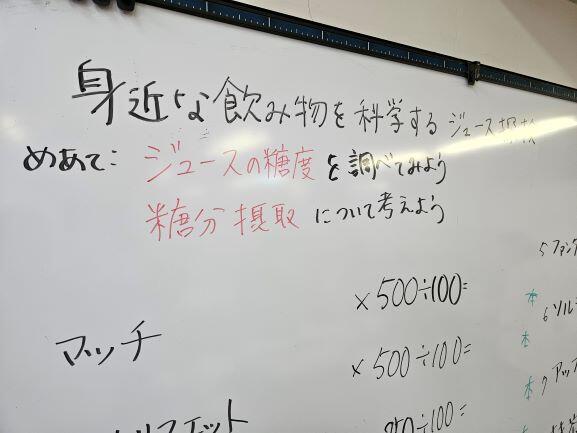 身近な飲み物を科学する ジュース
めあて: ジュースの糖度を調べてみよう
糖分摂取について考えよう
×500÷100=
マッチ ×500÷100=
÷100=
5 ファンタ
本 6 ソル
本
本 7 アップ